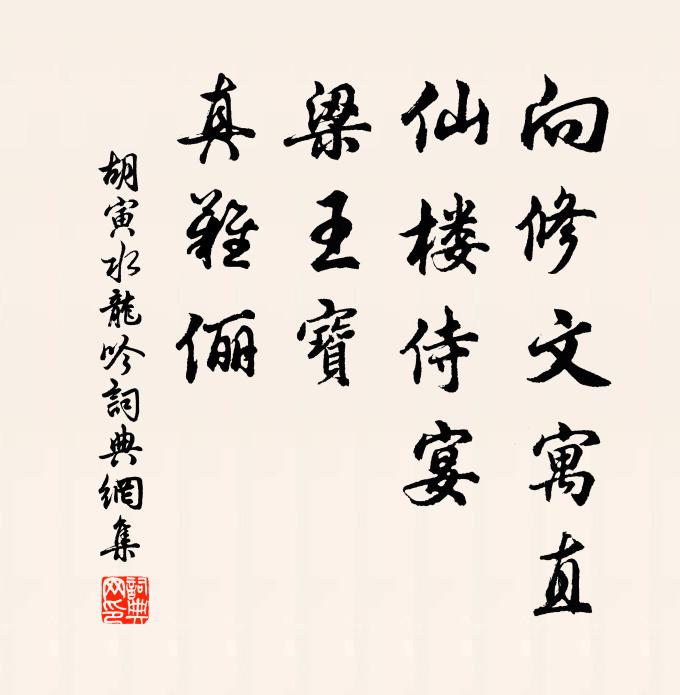 向修文寓直
仙楼侍宴
梁王寶
真難儷
胡寅水龍吟詞典網集
詞典網印